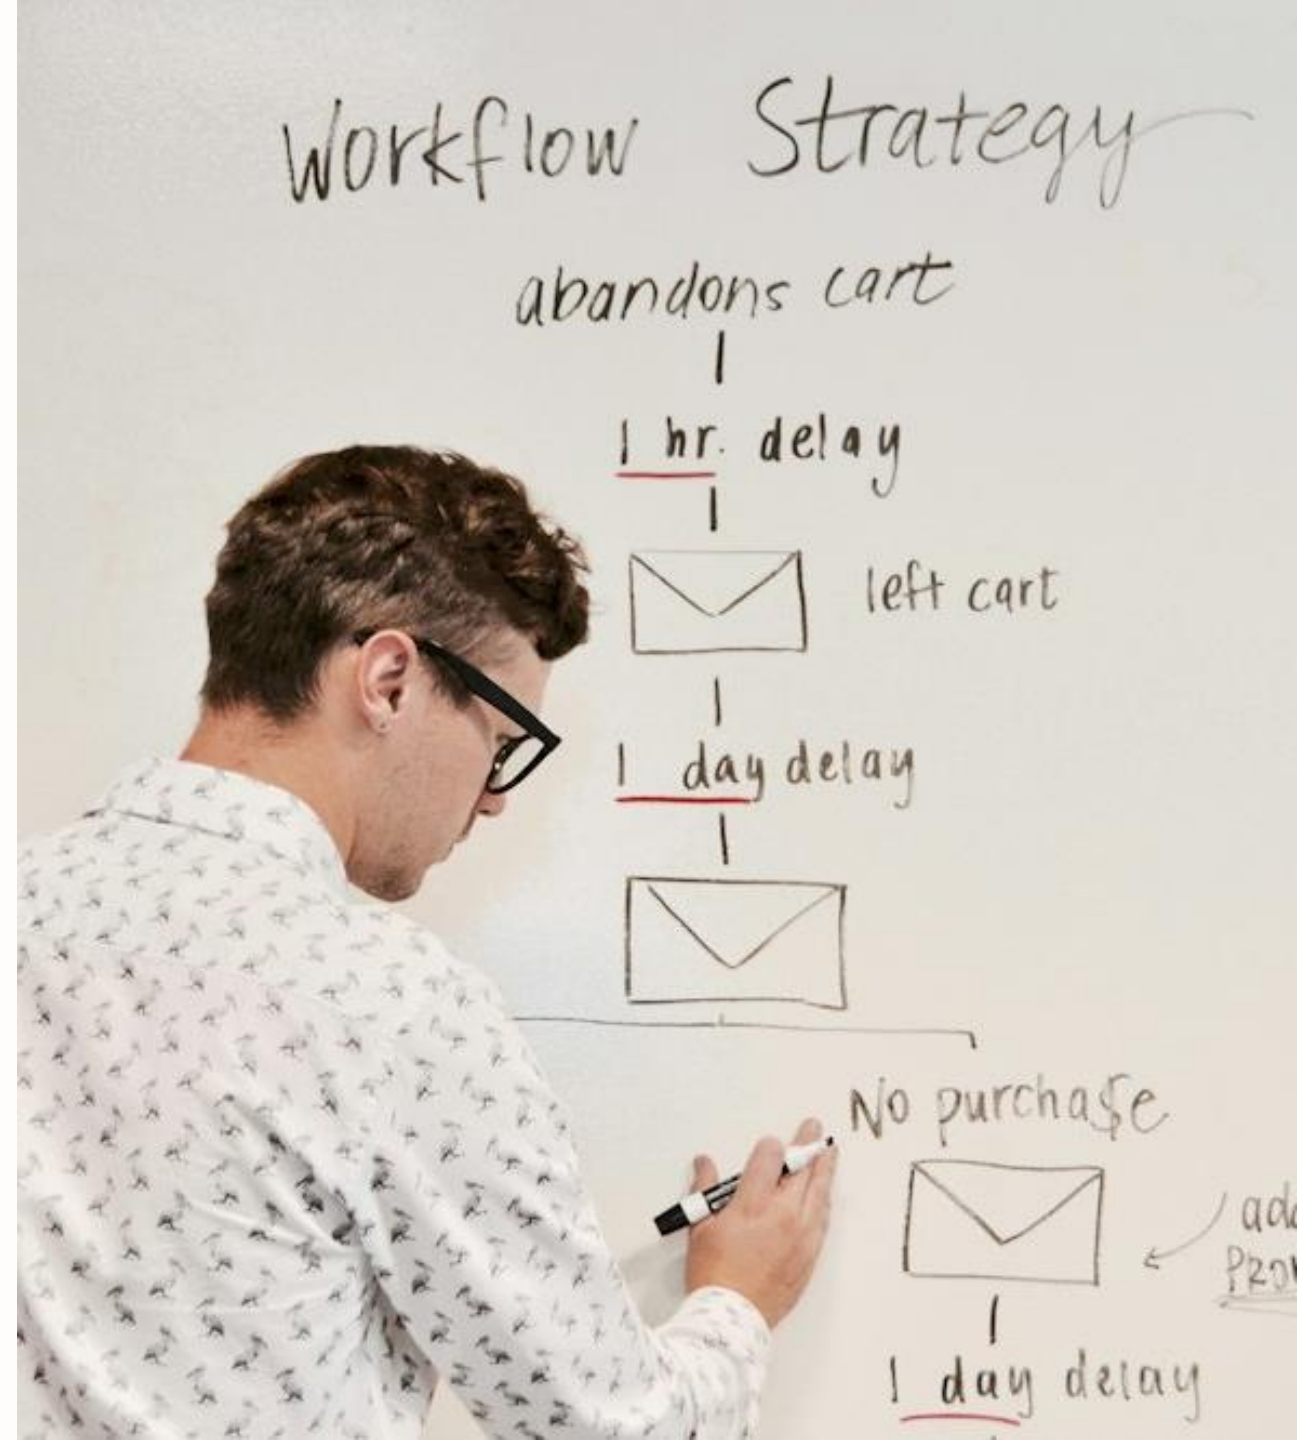 Workflow Strategy
abandons cart
1 hr. delay
left cart
1 day delay
No purchase
1 day delay